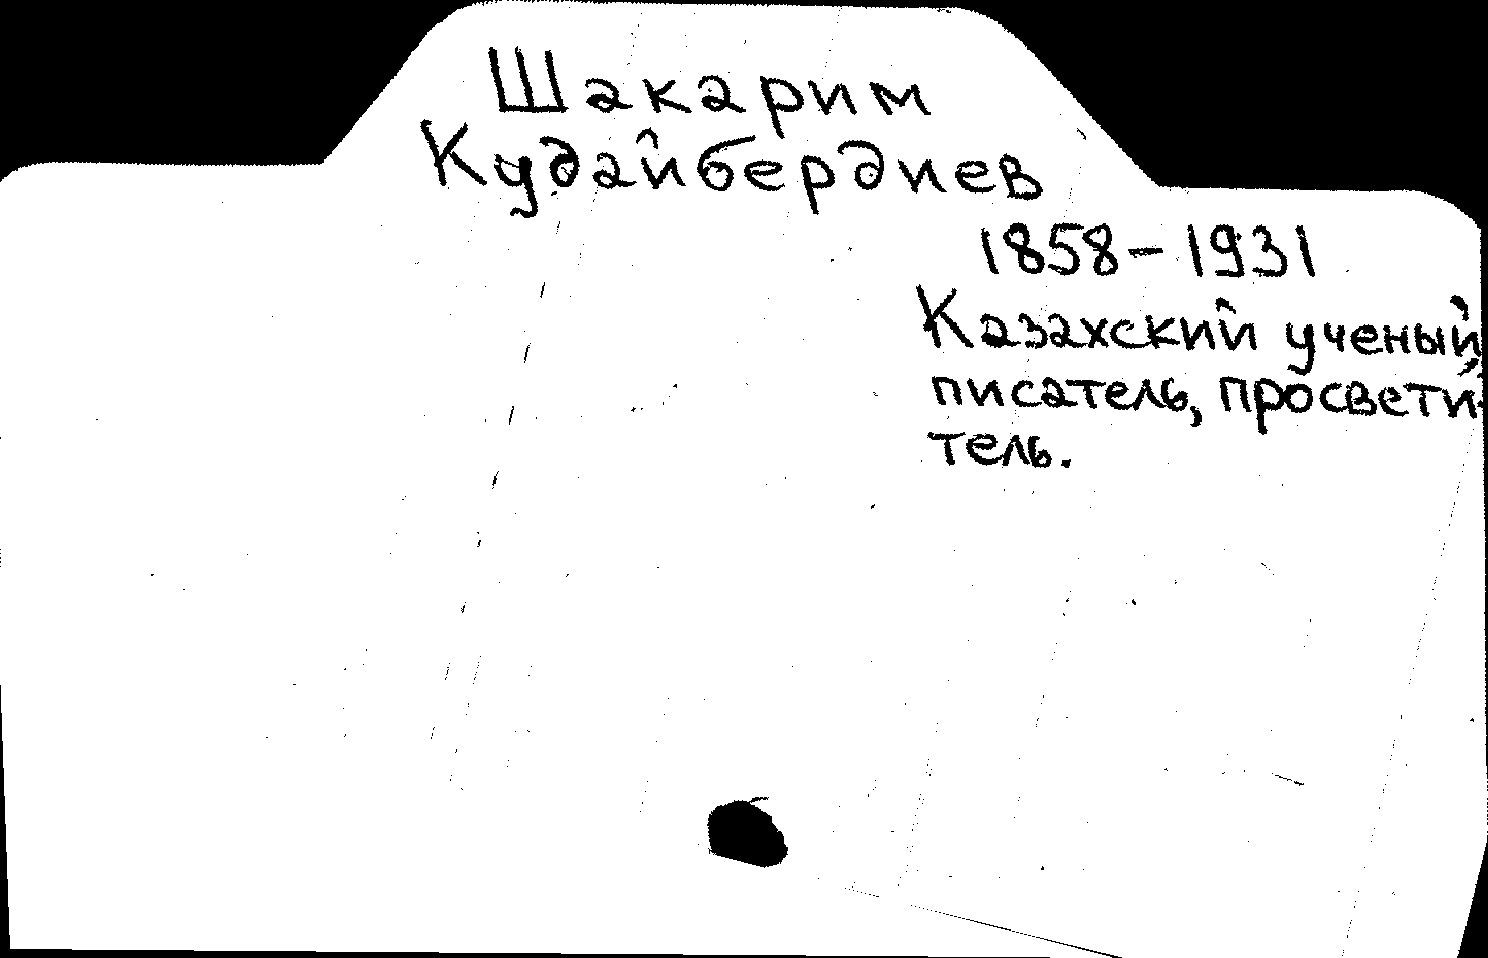 Шакарим
Кудайбердиев
1858-1931
Казахский ученый,
писатель, просвети-
тель.